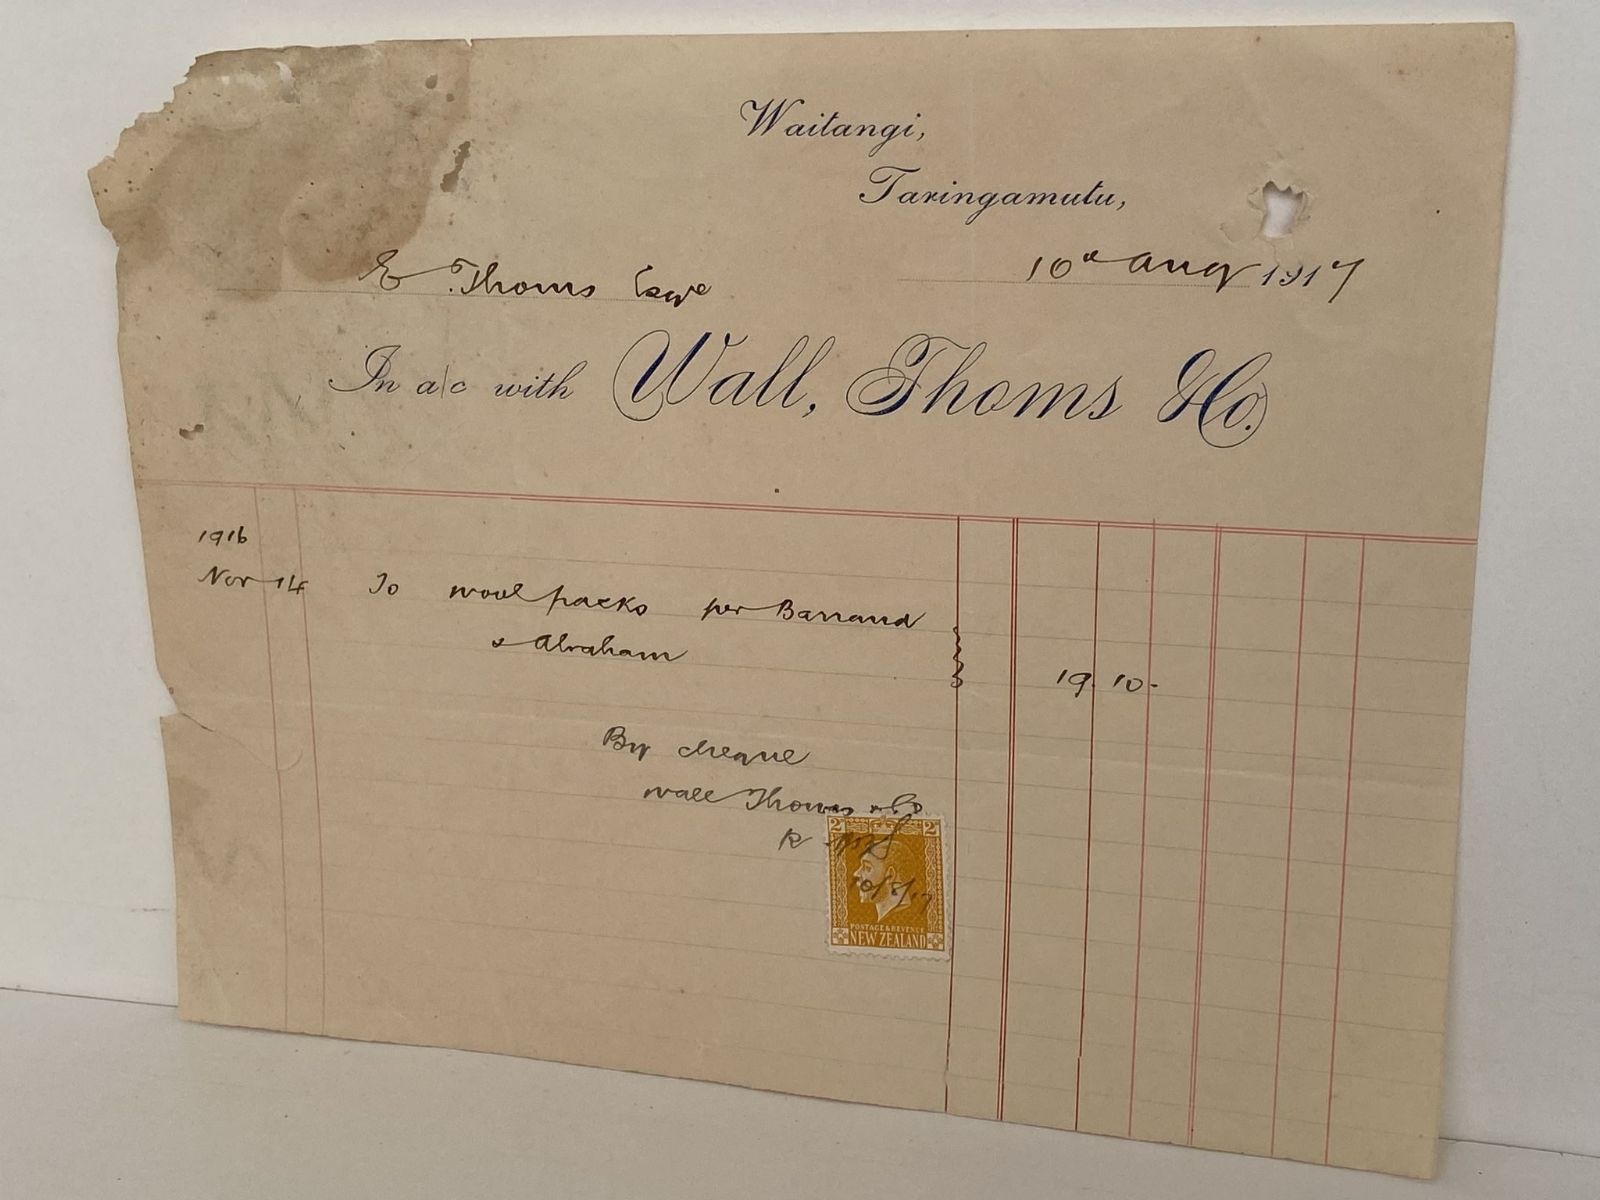 Waitangi,
Taringamutu,
E Thoms Esqre 10th Aug 1917
In a/c with Wall, Thoms & Co.
1916
Nov 14 To wool packs per Barraud
& Abraham 19. 10 -
By cheque
Wall Thoms & Co
R
10/8/17
2 2
POSTAGE & REVENUE
NEW ZEALAND